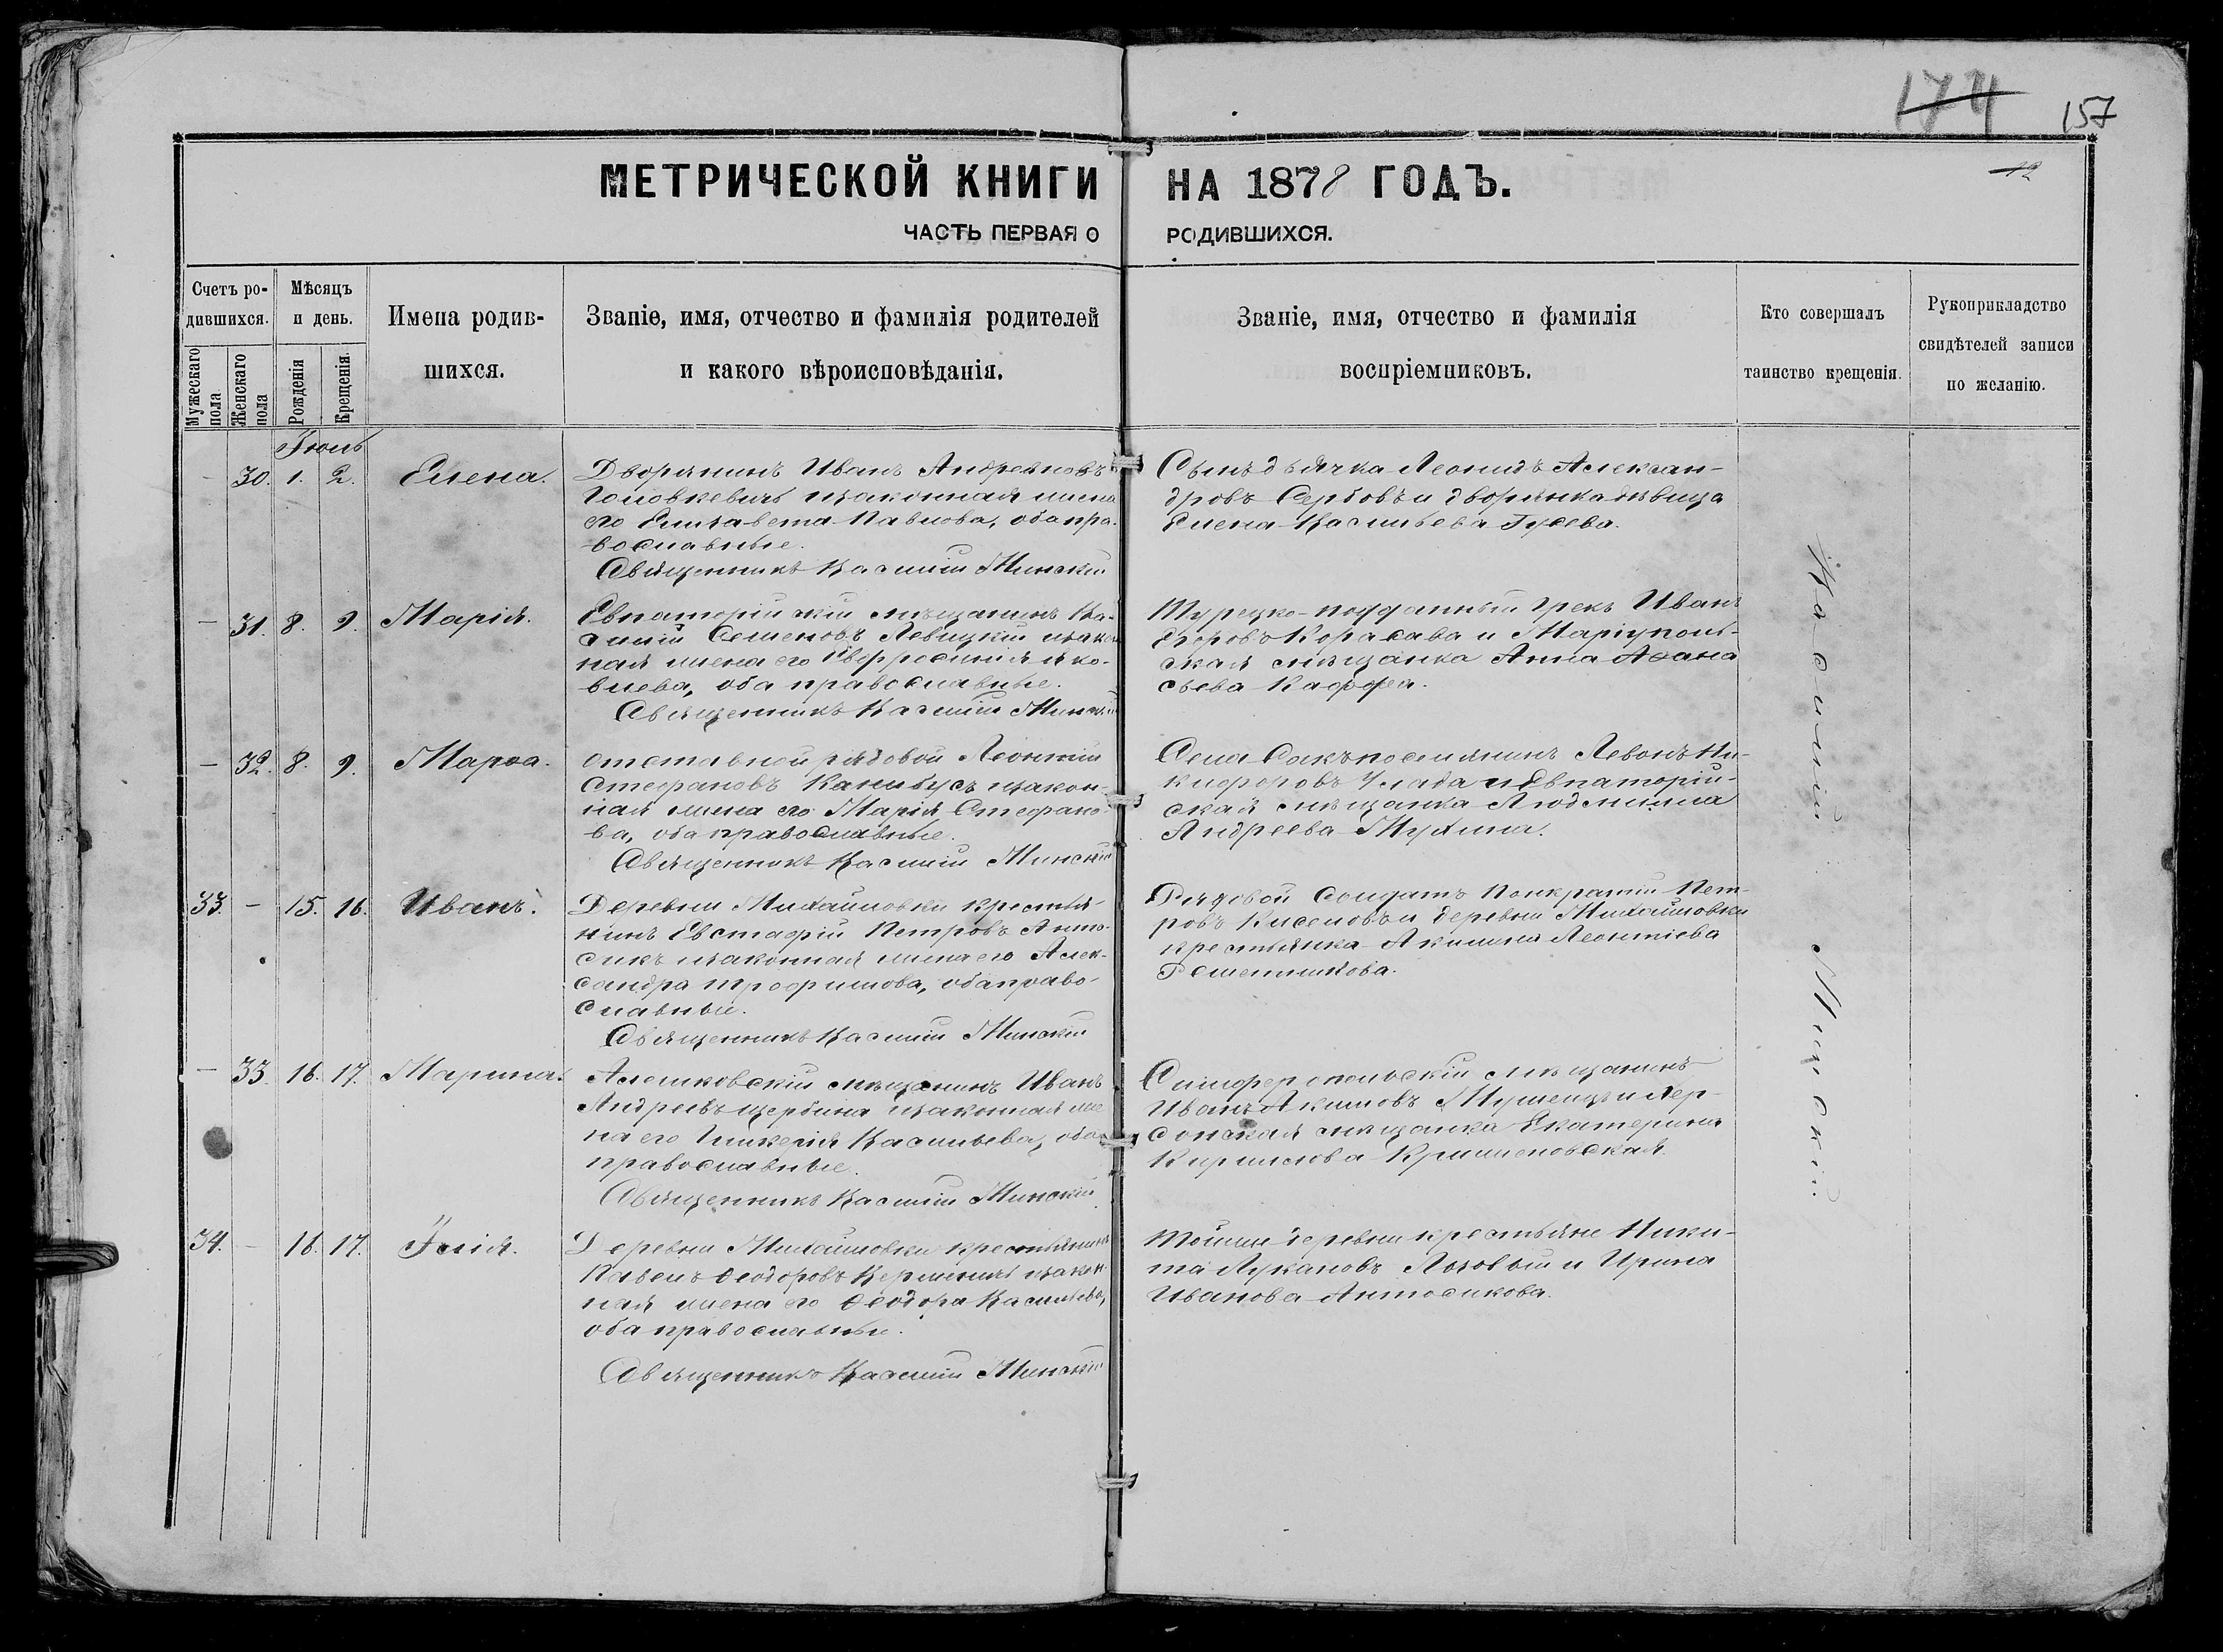 174 157
МЕТРИЧЕСКОЙ КНИГИ НА 1878 ГОДЪ.
12
ЧАСТЬ ПЕРВАЯ О РОДИВШИХСЯ.
Счетъ ро-
дившихся.
Мужескаго пола
Женскаго пола
Мѣсяцъ
и день.
Рожденія
Крещенія.
Имена родив-
шихся.
Званіе, имя, отчество и фамилія родителей
и какого вѣроисповѣданія.
Званіе, имя, отчество и фамилія
воспріемниковъ.
Кто совершалъ
таинство крещенія.
Рукоприкладство
свидѣтелей записи
по желанію.
- 30. 1. 2. Елена.
Дворянинъ Иванъ Андреевъ
изаконная жена
его Елизавета Павлова, оба пра-
вославные.
Священникъ Василій
Сынъ дьячка Леонидъ Алексан-
дровъ Сербовъ и дворянка дѣвица
Елена Васильева Гусева.
- 31. 8. 9. Марія.
Евпаторійскій мѣщанинъ Ва-
силій Семеновъ Левицкій изакон
ная жена его Евфросинія Яко-
влева, оба православные.
Священникъ Василій
Турецко-подданный грекъ Иванъ
Егоровъ Корасава и Маріуполь-
ская мѣщанка Анна Аѳана
сьева Каффеа.
- 32. 8. 9. Марѳа.
Отставной рядовой Леонтій
Стефановъ изакон-
ная жена его Марія Стефано-
ва, оба православные.
Священникъ Василій
Села Сакъ поселянинъ Левонъ Ни-
кифоровъ и Евпаторій-
ская мѣщанка Людмила
Андреева Мухина.
33. - 15. 16. Иванъ.
Деревни Михайловки крестья-
нинъ Евстафій Петровъ Анто-
сикъ изаконная жена его Алек-
сандра Трофимова, оба право-
славные.
Священникъ Василій
Рядовой солдатъ Панкратій Пет-
ровъ Киселовъ и деревни Михайловки
крестьянка Акилина Леонтіева
Решетникова.
- 33. 16. 17. Марина.
Алешковскій мѣщанинъ Иванъ
Андреевъ Щербина изаконная же
на его Гликерія Васильева, оба
православные.
Священникъ Василій
Симферопольскій мѣщанинъ
Иванъ Акимовъ и Хер-
сонская мѣщанка Екатерина
Кирилова
34. - 16. 17. Илія.
Деревни Михайловки крестьянинъ
Павелъ Ѳеодоровъ изакон
ная жена его Ѳеодора Васильева,
оба православные.
Священникъ Василій
Тойже деревни крестьяне Ники-
та Лукановъ Лозовый и Ирина
Иванова Антосикова.
Іюль
Василій